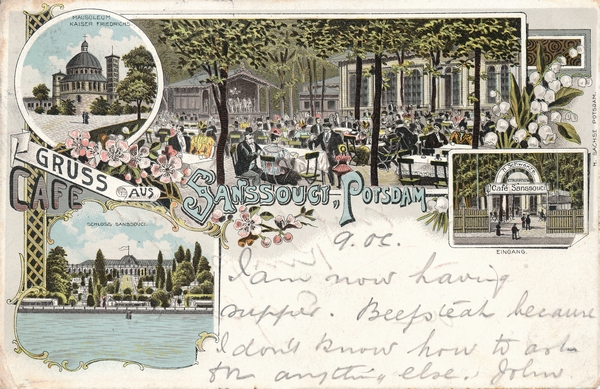 MAUSOLEUM
KAISER FRIEDRICHS
H. SACHSE POTSDAM.
GRUSS AUS
CAFÉ
SANSSOUCI, POTSDAM
RESTAURANT
Café Sanssouci
EINGANG.
SCHLOSS SANSSOUCI.
I am now having
supper. Beefsteak because
I don't know how to ask
for anything else. John